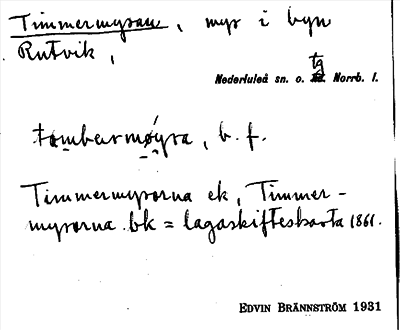 Timmermyran, myr i byn
Rutvik,
tg
Nederluleå sn. o. sd. Norrb. l.
tombermøyra, b. f.
Timmermyrorna ek, Timmer-
myrorna bk = lagaskifteskarta 1861.
EDVIN BRÄNNSTRÖM 1931